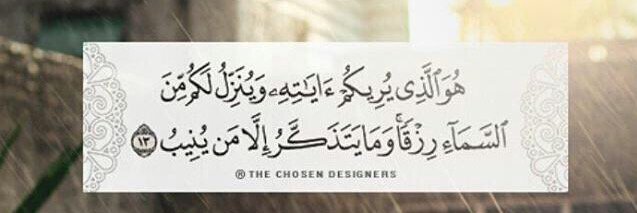 هُوَ ٱلَّذِى يُرِيكُمْ ءَايَـٰتِهِۦ وَيُنَزِّلُ لَكُم مِّنَ
ٱلسَّمَآءِ رِزْقًا ۚ وَمَا يَتَذَكَّرُ إِلَّا مَن يُنِيبُ ١٣
® THE CHOSEN DESIGNERS